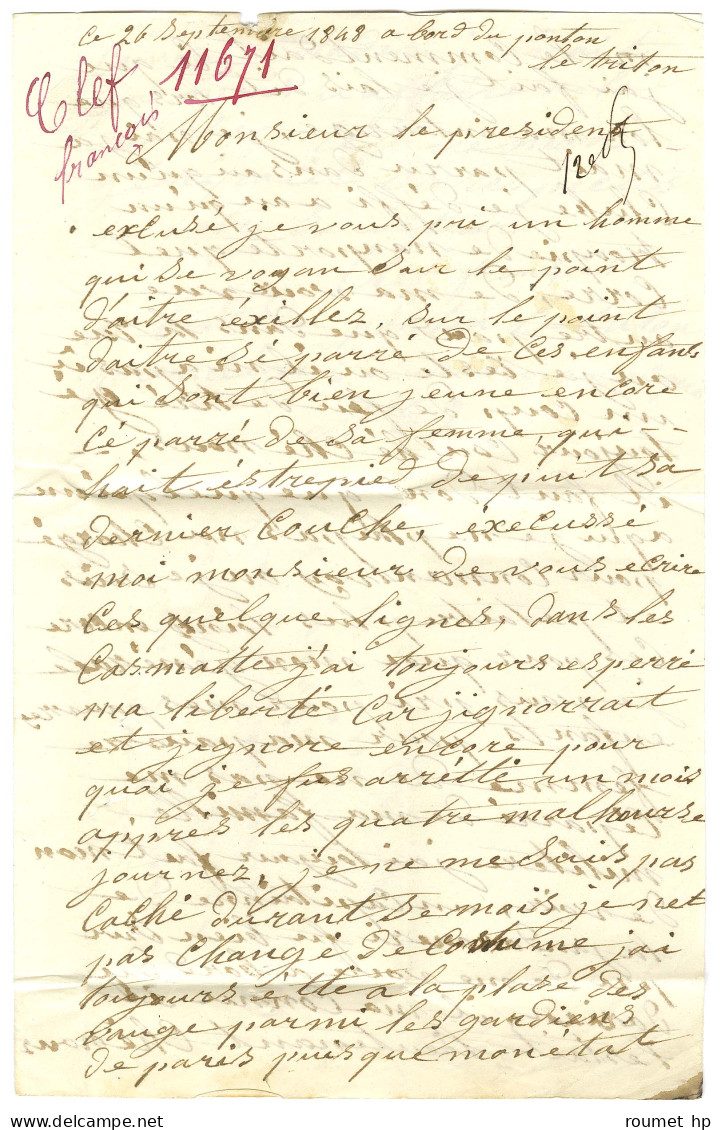 ce 26 Septembre 1848 a bord du ponton
le triton
Clef 11671
françois
Monsieur le president
excusé je vous pri un homme
qui se voyan sur le point
d'aitre éxillez, sur le point
daitre sé parré de ces enfants
qui sont bien jeune encore
cé parré de sa femme, qui
hait éstrepied de puit sa
dernier couche, éxcussé
moi monsieur de vous ecrire
ces quelque lignes, dans les
Casmatte j'ai toujours esperré
ma liberté car jignorrait
et jignore encore pour
quoi je fus arrétté un mois
apprés les quatré malhourse
journez, je ne me suis pas
caché durant se mois je net
pas changé de costume jai
toujours étté a la plase des
vauge parmi les gardiens
de paris puisque mon état
roumet hp